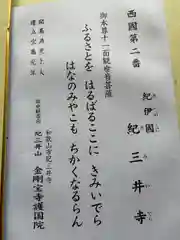 西國第二番
紀伊國
紀三井寺
御本尊十一面観世音菩薩
ふるさとを はるばるここに きみいでら
はなのみやこも ちかくなるらん
和歌山市紀三井寺
紀三井山 金剛宝寺護国院